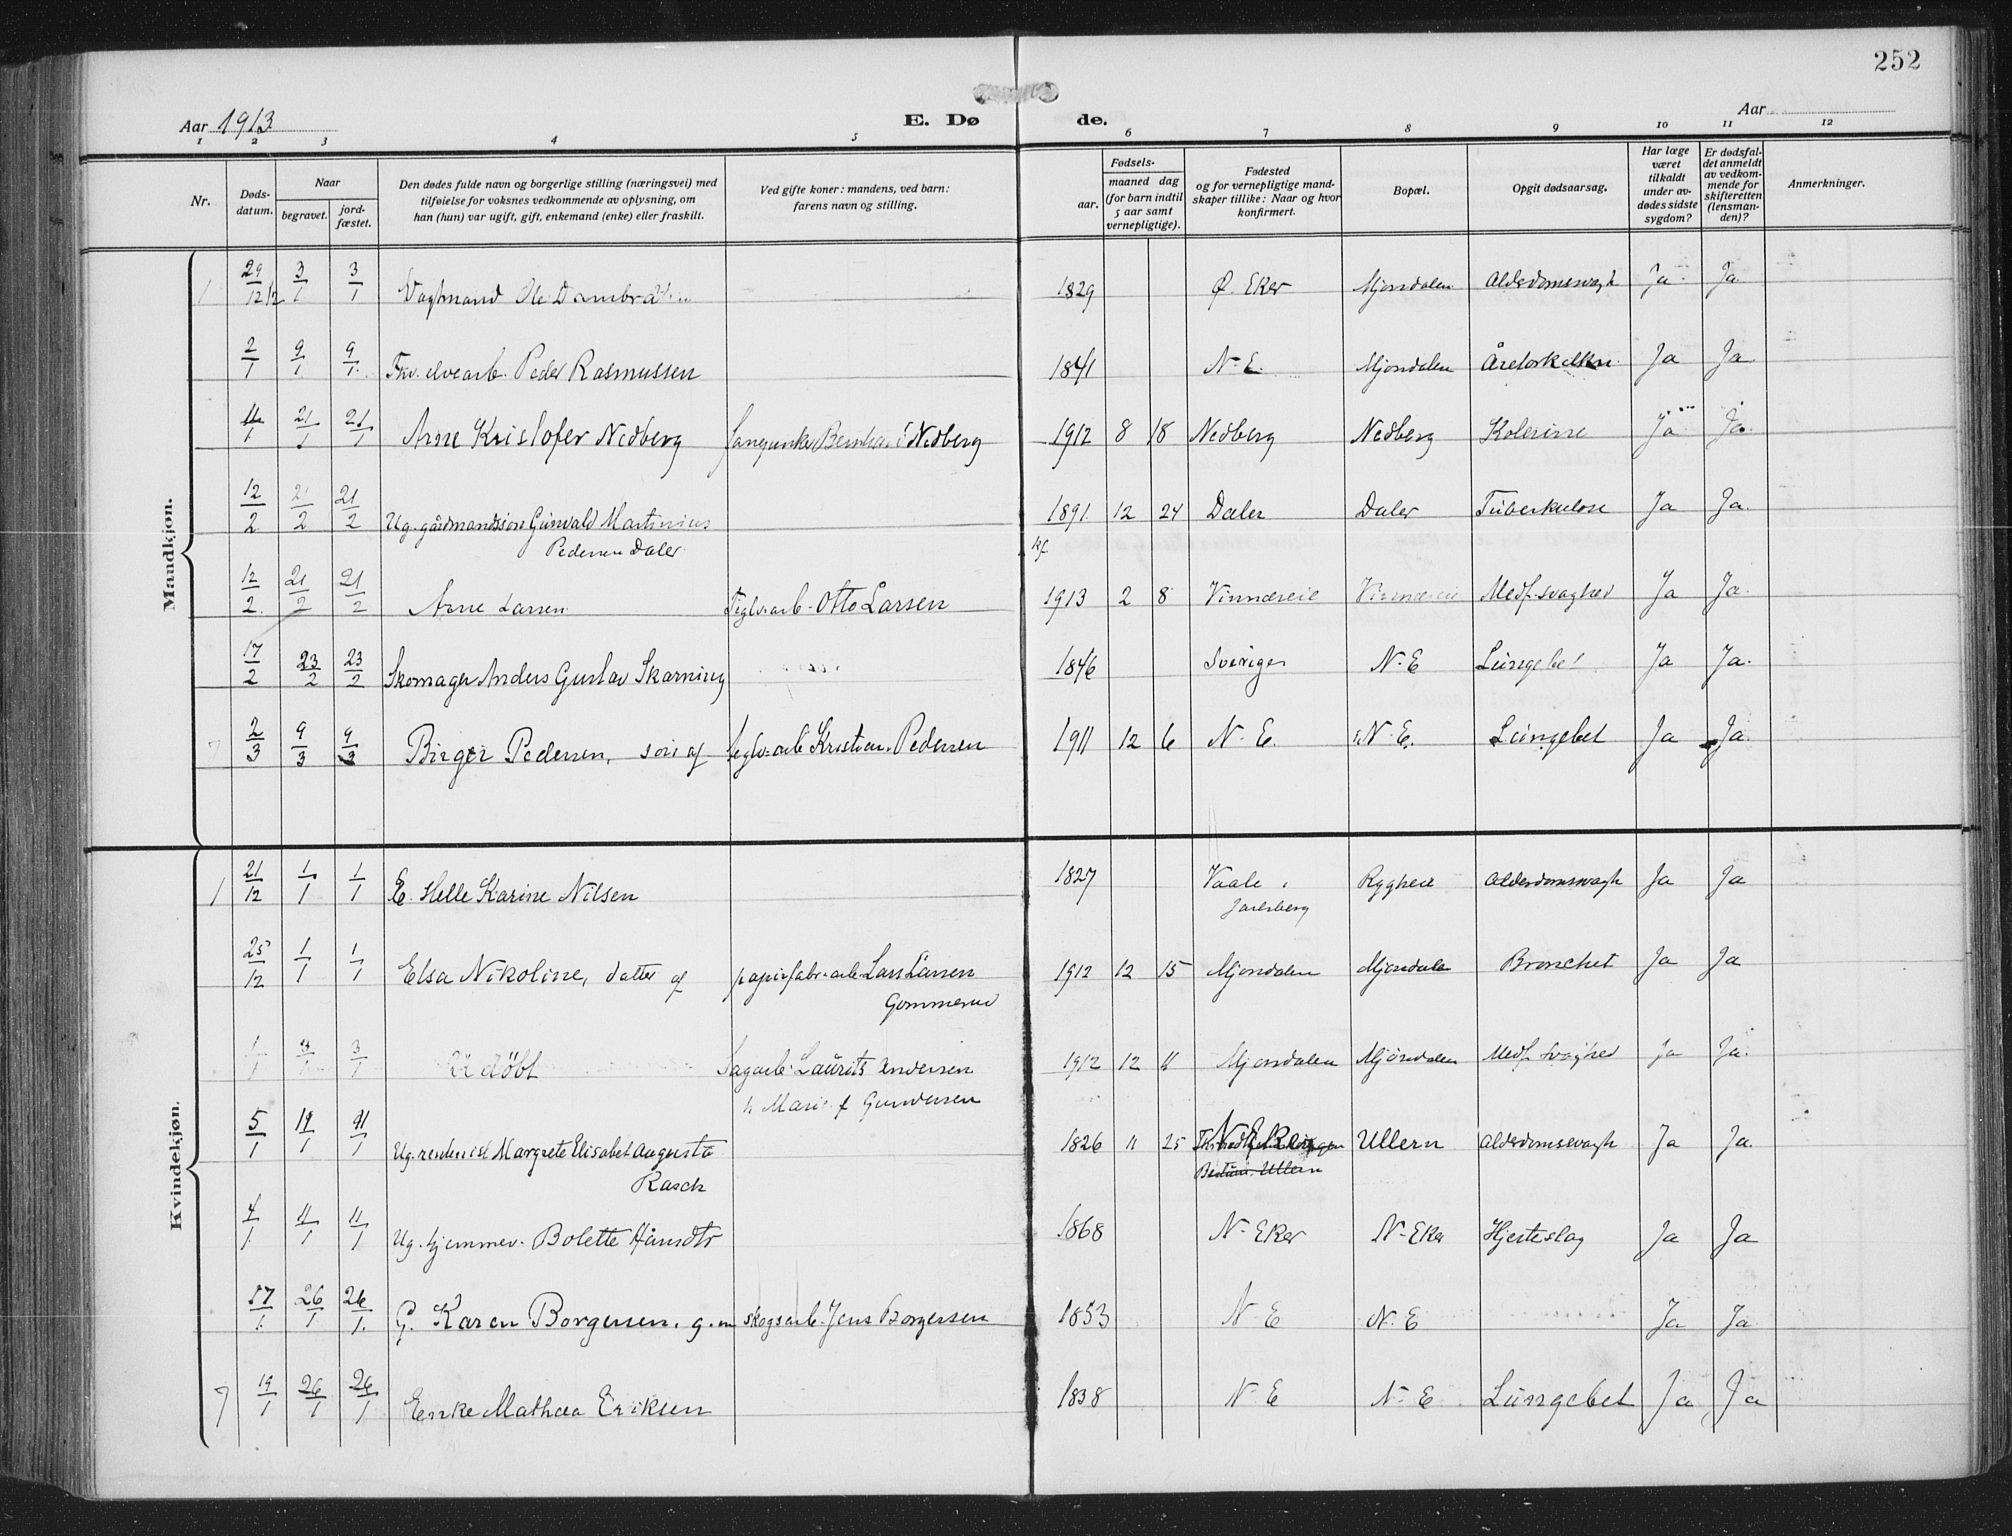 252
Aar 1913 E. Dø de. Aar
1 2 3 4 5 6 7 8 9 10 11 12
Nr. Døds-datum. Naar begravet. jord-fæstet. Den dødes fulde navn og borgerlige stilling (næringsvei) med tilføielse for voksnes vedkommende av oplysning, om han (hun) var ugift, gift, enkemand (enke) eller fraskilt. Ved gifte koner: mandens, ved barn: farens navn og stilling. Fødsels- aar. maaned dag (for barn indtil 5 aar samt vernepligtige). Fødested og for vernepligtige mandskaper tillike: Naar og hvor konfirmert. Bopæl. Opgit dødsaarsag. Har læge været tilkaldt under avdødes sidste sygdom? Er dødsfaldet anmeldt av vedkommende for skifteretten (lensmanden)? Anmerkninger.
Mandkjøn.
1 29/12 12 3/1 3/1 Vagtmand Ole 1829 Ø. Eker Mjøndalen Alderdomsvagh Ja Ja
2/1 9/1 9/1 Fhv. elvearb. Peder Rasmussen 1841 N-E. Mjøndalen Ja Ja
11/1 21/1 21/1 Arne Kristofer Nedberg Nedberg 1912 8 18 Nedberg Nedberg Kolerine Ja Ja
12/2 21/2 21/2 Ug. gårdmandssøn Gunvald Martinius 1891 12 24 Daler Daler Tuberkulose Ja Ja
Pedersen Daler
12/2 21/2 21/2 Arne Larsen Teglv.arb. Otto Larsen 1913 2 8 Vinnæseie Vinnæseie Medf. svaghed Ja Ja
17/2 23/2 23/2 Skomager Anders Gustav Skarning 1846 Sverige N-E Lungebet Ja Ja
7 2/3 9/3 9/3 Birger Pedersen, søn af Teglv.arb Kristian Pedersen 1911 12 6 N-E. N-E. Lungebet Ja Ja
Kvindekjøn.
1 21/12 1/1 1/1 E. Helle Karine Nilsen 1827 Vaale i Rygheie Alderdomsvagh Ja Ja
Jarlsberg
25/12 1/1 1/1 Elsa Nikoline, datter af papirfabr.arb Lars Larsen 1912 12 15 Mjøndalen Mjøndalen Bronchit Ja Ja
Gommerud
1/1 3/1 3/1 Udöbt Sagarb. Laurits Andersen 1912 12 11 Mjøndalen Mjøndalen Medf. svaghed Ja Ja
h Marie f Gundersen
5/1 11/1 11/1 Ug. rentenist Margrete Elisabet Augusta 1826 11 25 N Eker Ullern Alderdomssvagh Ja Ja
Rasch Ullern
4/1 11/1 11/1 Ug. hjemmev. Bolette Hansdtr 1868 N-Eker N-Eker Hjerteslag Ja Ja
17/1 26/1 26/1 G. Karen Borgersen. g. m skogsarb. Jens Borgersen 1853 N-E N-E Ja Ja
7 19/1 26/1 26/1 Enke Mathea Eriksen 1838 N-E N-E Lungebet Ja Ja